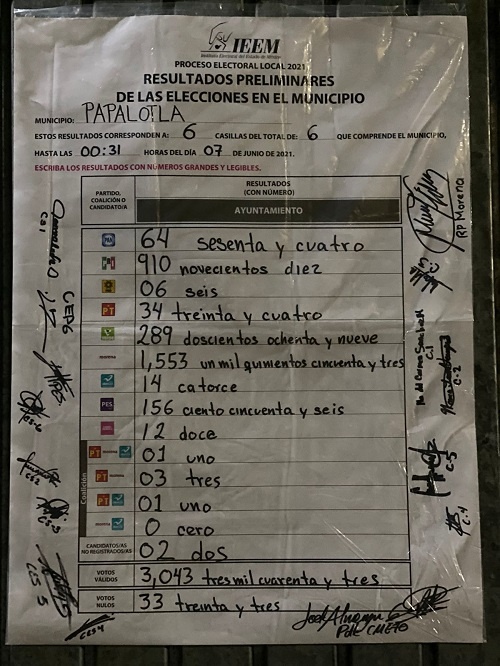 IEEM
Instituto Electoral del Estado de México
PROCESO ELECTORAL LOCAL 2021
RESULTADOS PRELIMINARES
DE LAS ELECCIONES EN EL MUNICIPIO
MUNICIPIO: PAPALOTLA
ESTOS RESULTADOS CORRESPONDEN A: 6 CASILLAS DEL TOTAL DE: 6 QUE COMPRENDE EL MUNICIPIO,
HASTA LAS 00:31 HORAS DEL DÍA 07 DE JUNIO DE 2021.
ESCRIBA LOS RESULTADOS CON NÚMEROS GRANDES Y LEGIBLES.
PARTIDO, COALICIÓN O CANDIDATO/A
RESULTADOS (CON NÚMERO)
AYUNTAMIENTO
PAN 64 sesenta y cuatro
PRI 910 novecientos diez
06 seis
PT 34 treinta y cuatro
289 doscientos ochenta y nueve
morena 1,553 un mil quinientos cincuenta y tres
14 catorce
PES 156 ciento cincuenta y seis
12 doce
Coalición
PT morena 01 uno
PT morena 03 tres
PT 01 uno
morena 0 cero
CANDIDATOS/AS NO REGISTRADOS/AS 02 dos
VOTOS VÁLIDOS 3,043 tres mil cuarenta y tres
VOTOS NULOS 33 treinta y tres
RP Morena
CEPG
CS1
CS2
CS 5
CS4
C-1
C-2
C-5
C-4